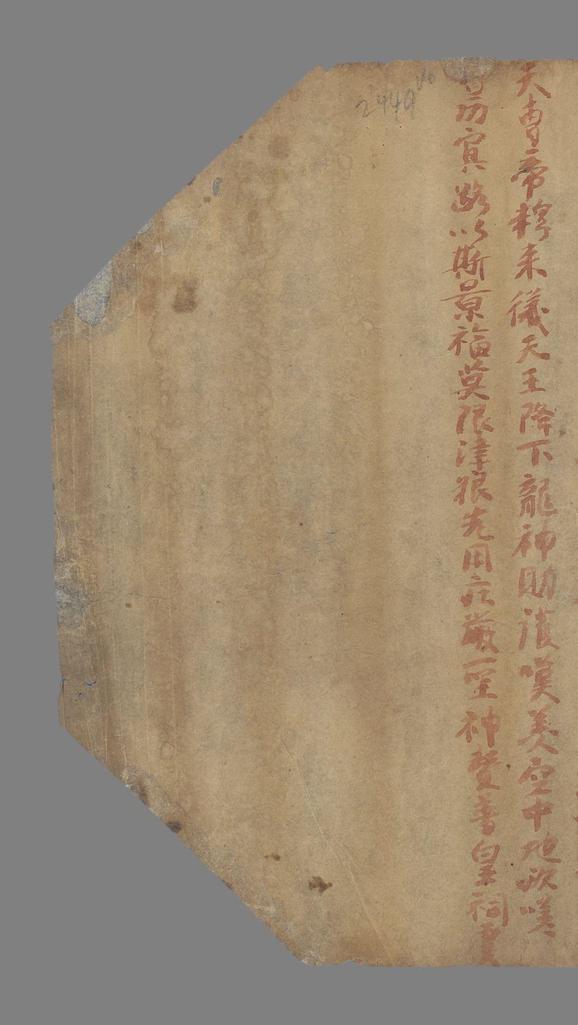 天曹帝釋來儀天王降下龍神助護嘆美空中地
寅路以斯景福莫限津粮先用莊嚴一聖神贊普皇祠
2449 vo